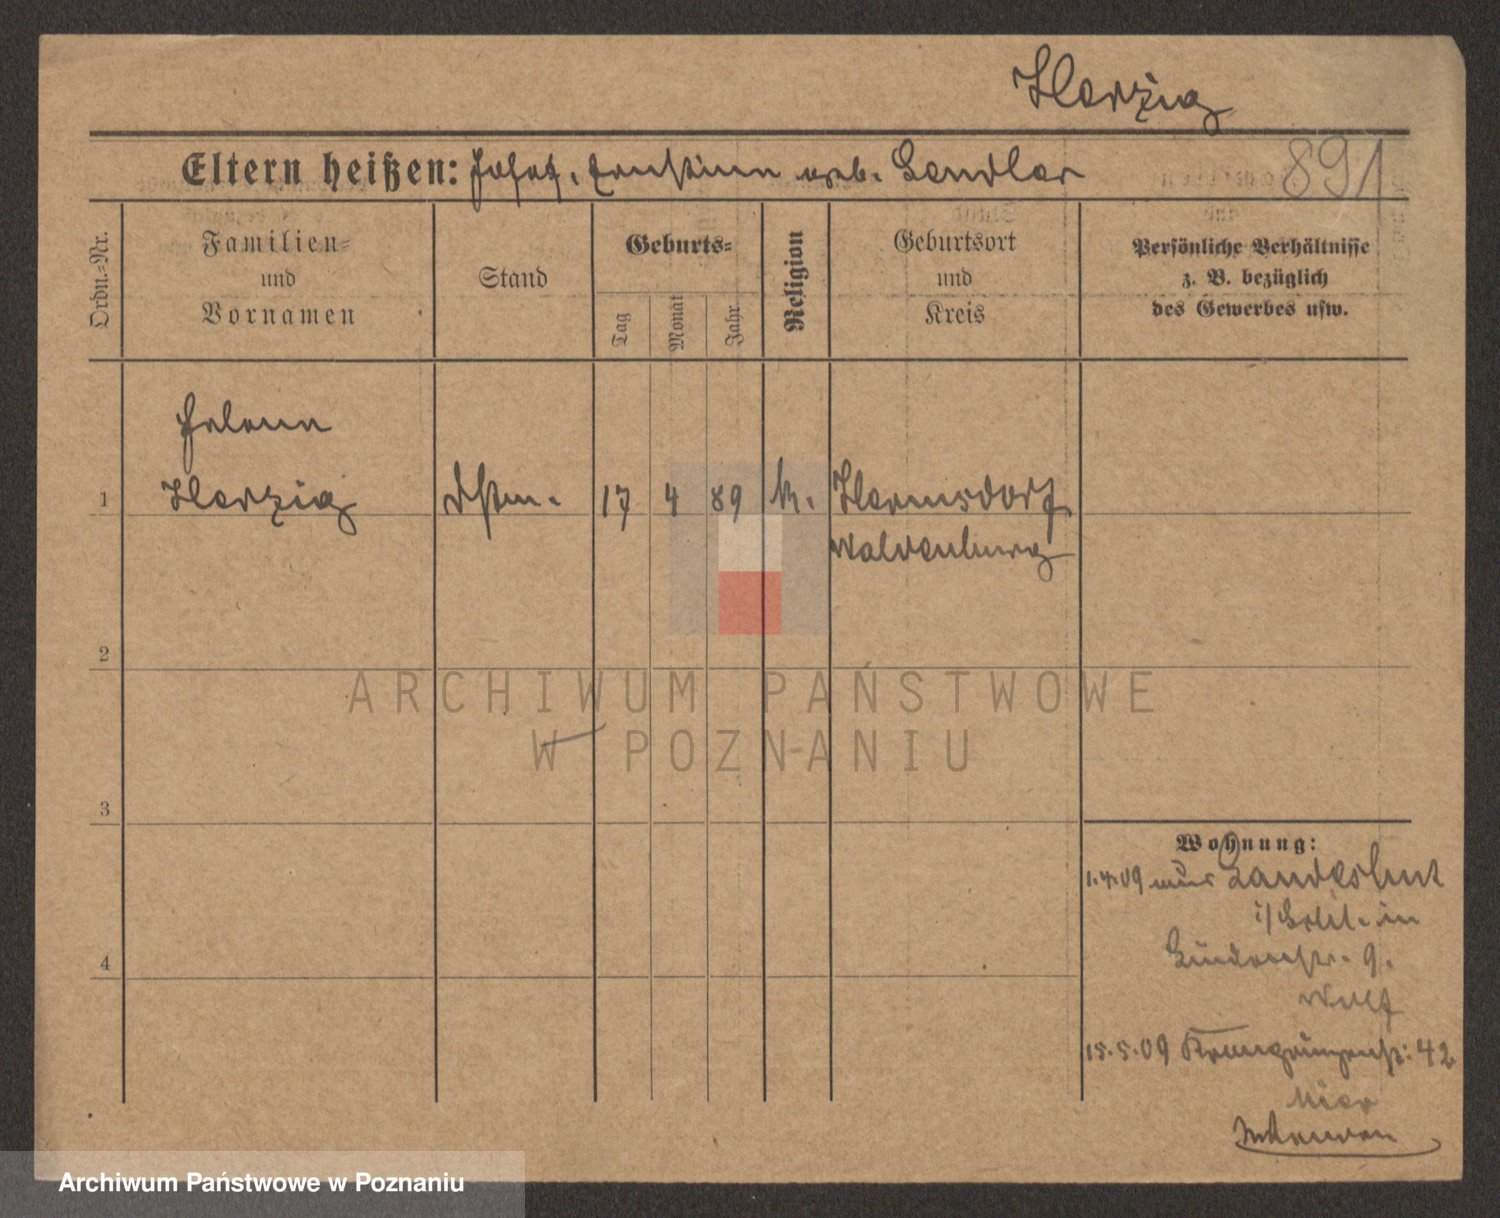 Herzig
891
Eltern heißen: Josef, Ernstine geb. Sendler
Ordn.-Nr.
Familien-
und
Vornamen
Stand
Geburts-
Tag
Monat
Jahr
Religion
Geburtsort
und
Kreis
Persönliche Verhältnisse
z. B. bezüglich
des Gewerbes usw.
Helene
1 Herzig Dstm. 17 4 89 k. Hermsdorf
Waldenburg
2
ARCHIWUM PAŃSTWOWE
W POZNANIU
3
Wohnung:
1.4.09 aus Landeshut
i/Schl. in
9.
Wolf
15.5.09 Kronprinzenstr. 42
4
Archiwum Państwowe w Poznaniu